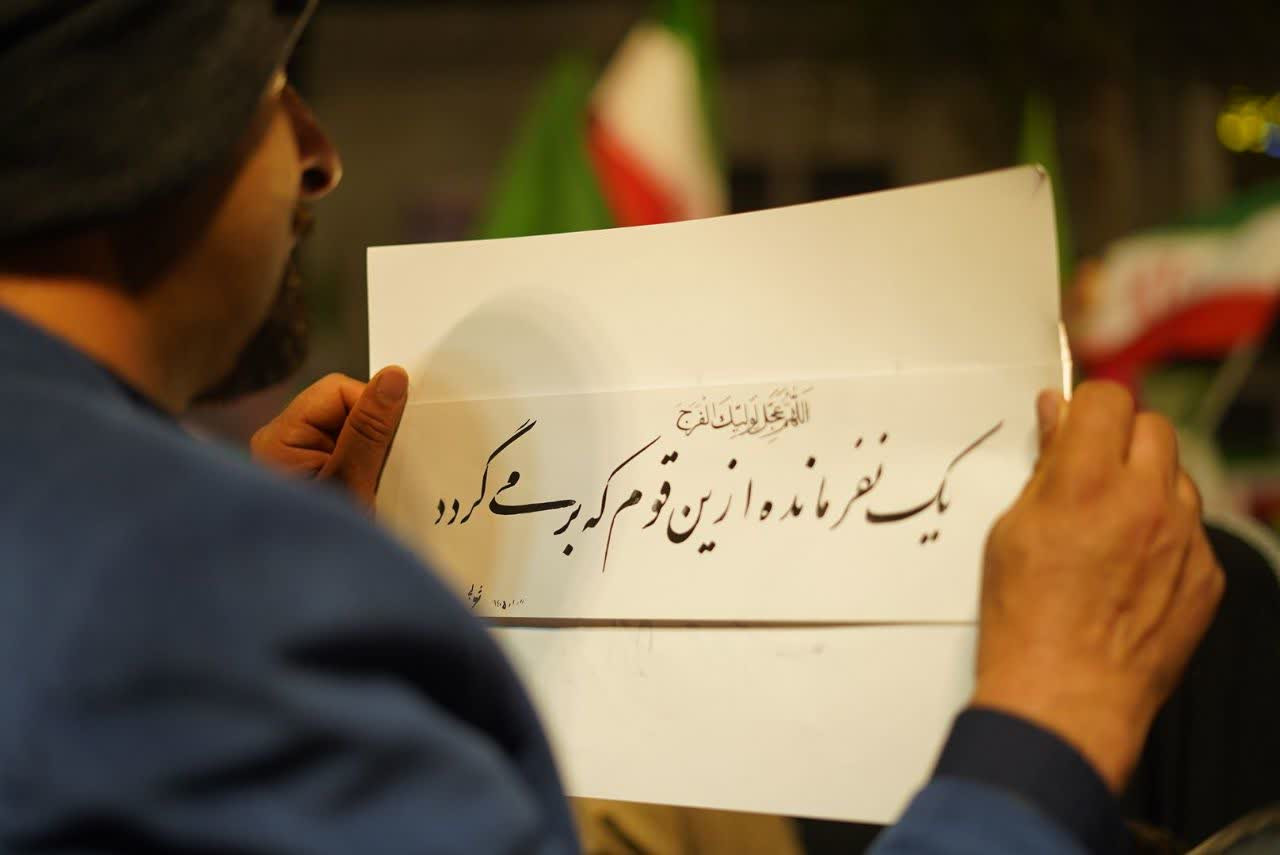 اللهم عجل لولیک الفرج
یک نفر مانده از ین قوم که بر می گردد